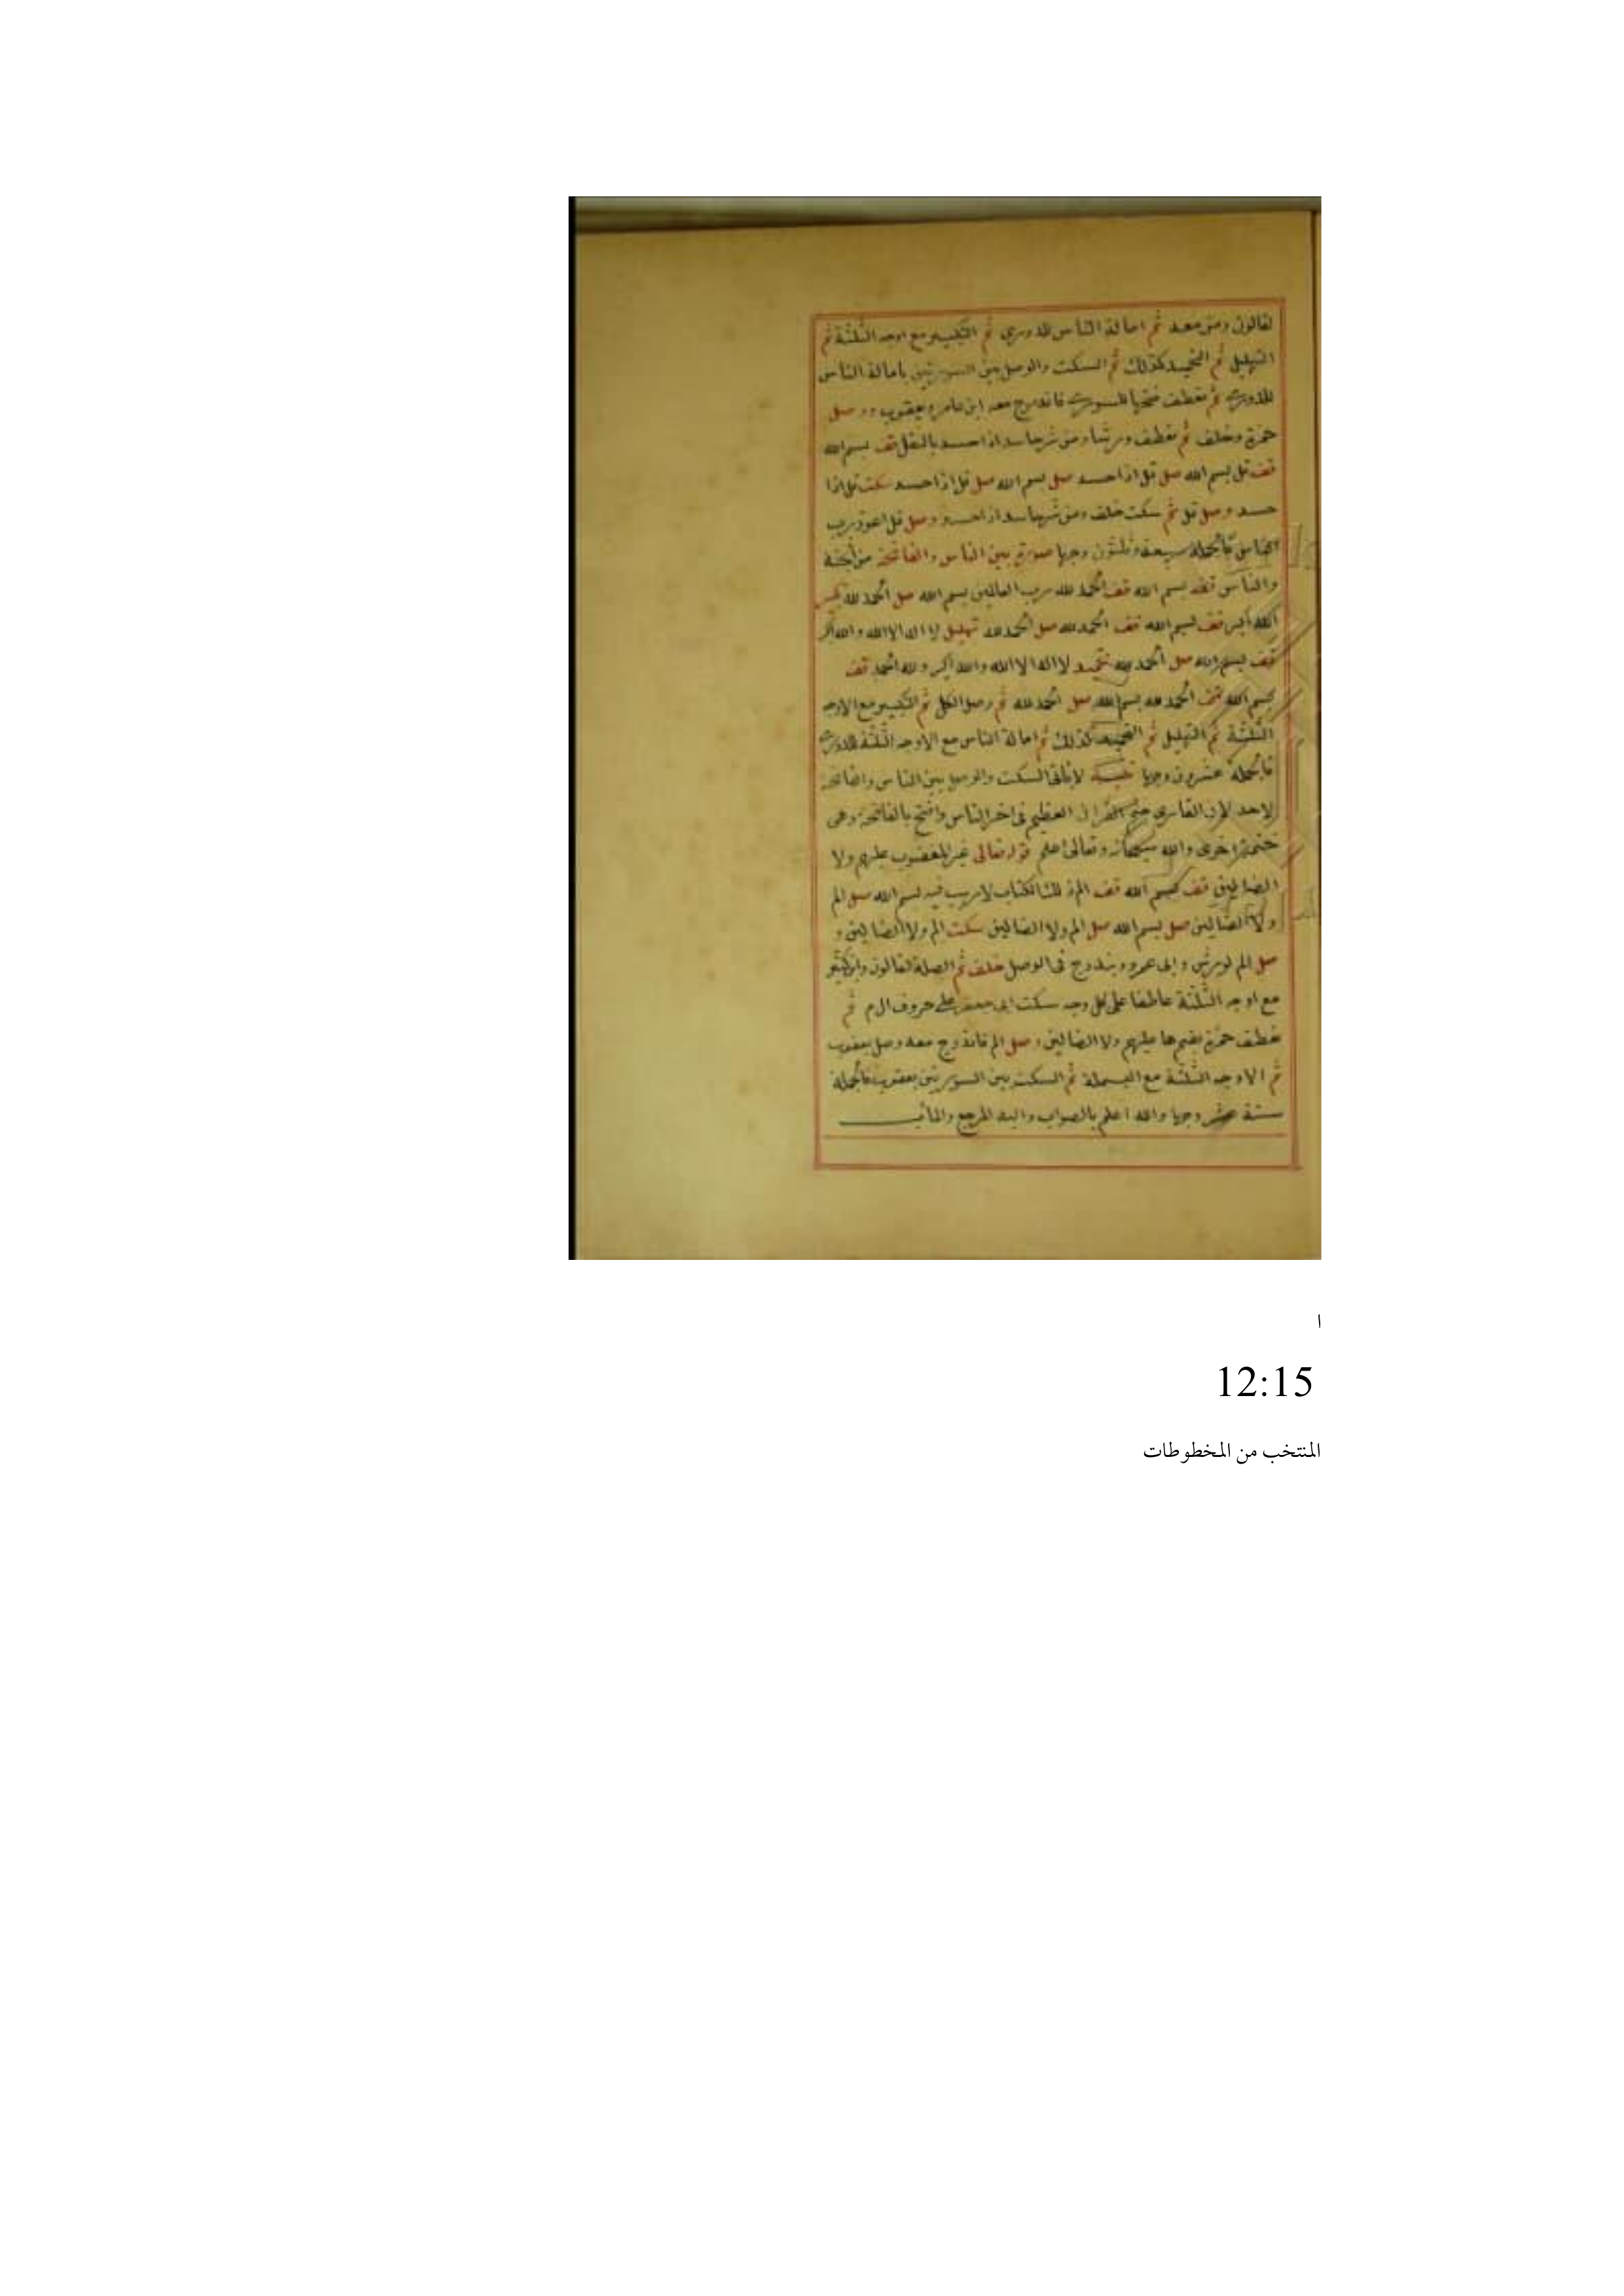 لقالون ومن معه ثم امالة الناس للدوري ثم التكبير مع اوجه الثلثة ثم
التهليل ثم التحميد كذلك ثم السكت والوصل بين السورتين بامالة الناس
للدوري ثم تعطف فتحها للسوسي فاندرج معه ابن عامر ويعقوب ووصل
حمزة وخلف ثم تعطف ورشا ومن شر حاسد اذا حسد بالنقل قف بسم الله
قف قل بسم الله صل قل اذا حسد صل بسم الله صل قل اذا حسد سكت قل اذا
حسد وصل قل ثم سكت خلف ومن شر حاسد اذا حسد ووصل قل اعوذ برب
الناس فالجملة سبعة وثلثون وجها صورة بين الناس والفاتحة من الجنة
والناس قف بسم الله قف الحمد لله رب العالمين بسم الله صل الحمد لله تكبير
الله أكبر قف بسم الله قف الحمد لله صل الحمد لله تهليل لا اله الا الله والله اكبر
قف بسم الله صل الحمد لله تحميد لا اله الا الله والله اكبر ولله الحمد قف
بسم الله قف الحمد لله بسم الله صل الحمد لله ثم وصل الكل ثم التكبير مع الاوجه
الثلثة ثم التهليل ثم التحميد كذلك ثم امالة الناس مع الاوجه الثلثة للدوري
فالجملة عشرون وجها تنبيه لا يأتي السكت والوصل بين الناس والفاتحة
لاحد لان القاري ختم القران العظيم في اخر الناس وافتتح بالفاتحة وهي
ختمة اخرى والله سبحانه وتعالى اعلم قوله تعالى غير المغضوب عليهم ولا
الضالين قف بسم الله قف الم ذلك الكتاب لا ريب فيه بسم الله صل الم
ولا الضالين صل بسم الله صل الم ولا الضالين سكت الم ولا الضالين و
صل الم لورش وابي عمرو ويندرج في الوصل خلف ثم الصلة لقالون وابن كثير
مع اوجه الثلثة عاطفا على كل وجه سكت ابي جعفر على حروف ال م ثم
تعطف حمزة بضم ها عليهم ولا الضالين وصل الم فاندرج معه وصل يعقوب
ثم الاوجه الثلثة مع البسملة ثم السكت بين السورتين يعقوب فالجملة
ستة عشر وجها والله اعلم بالصواب واليه المرجع والمآب
ا
12:15
المنتخب من المخطوطات